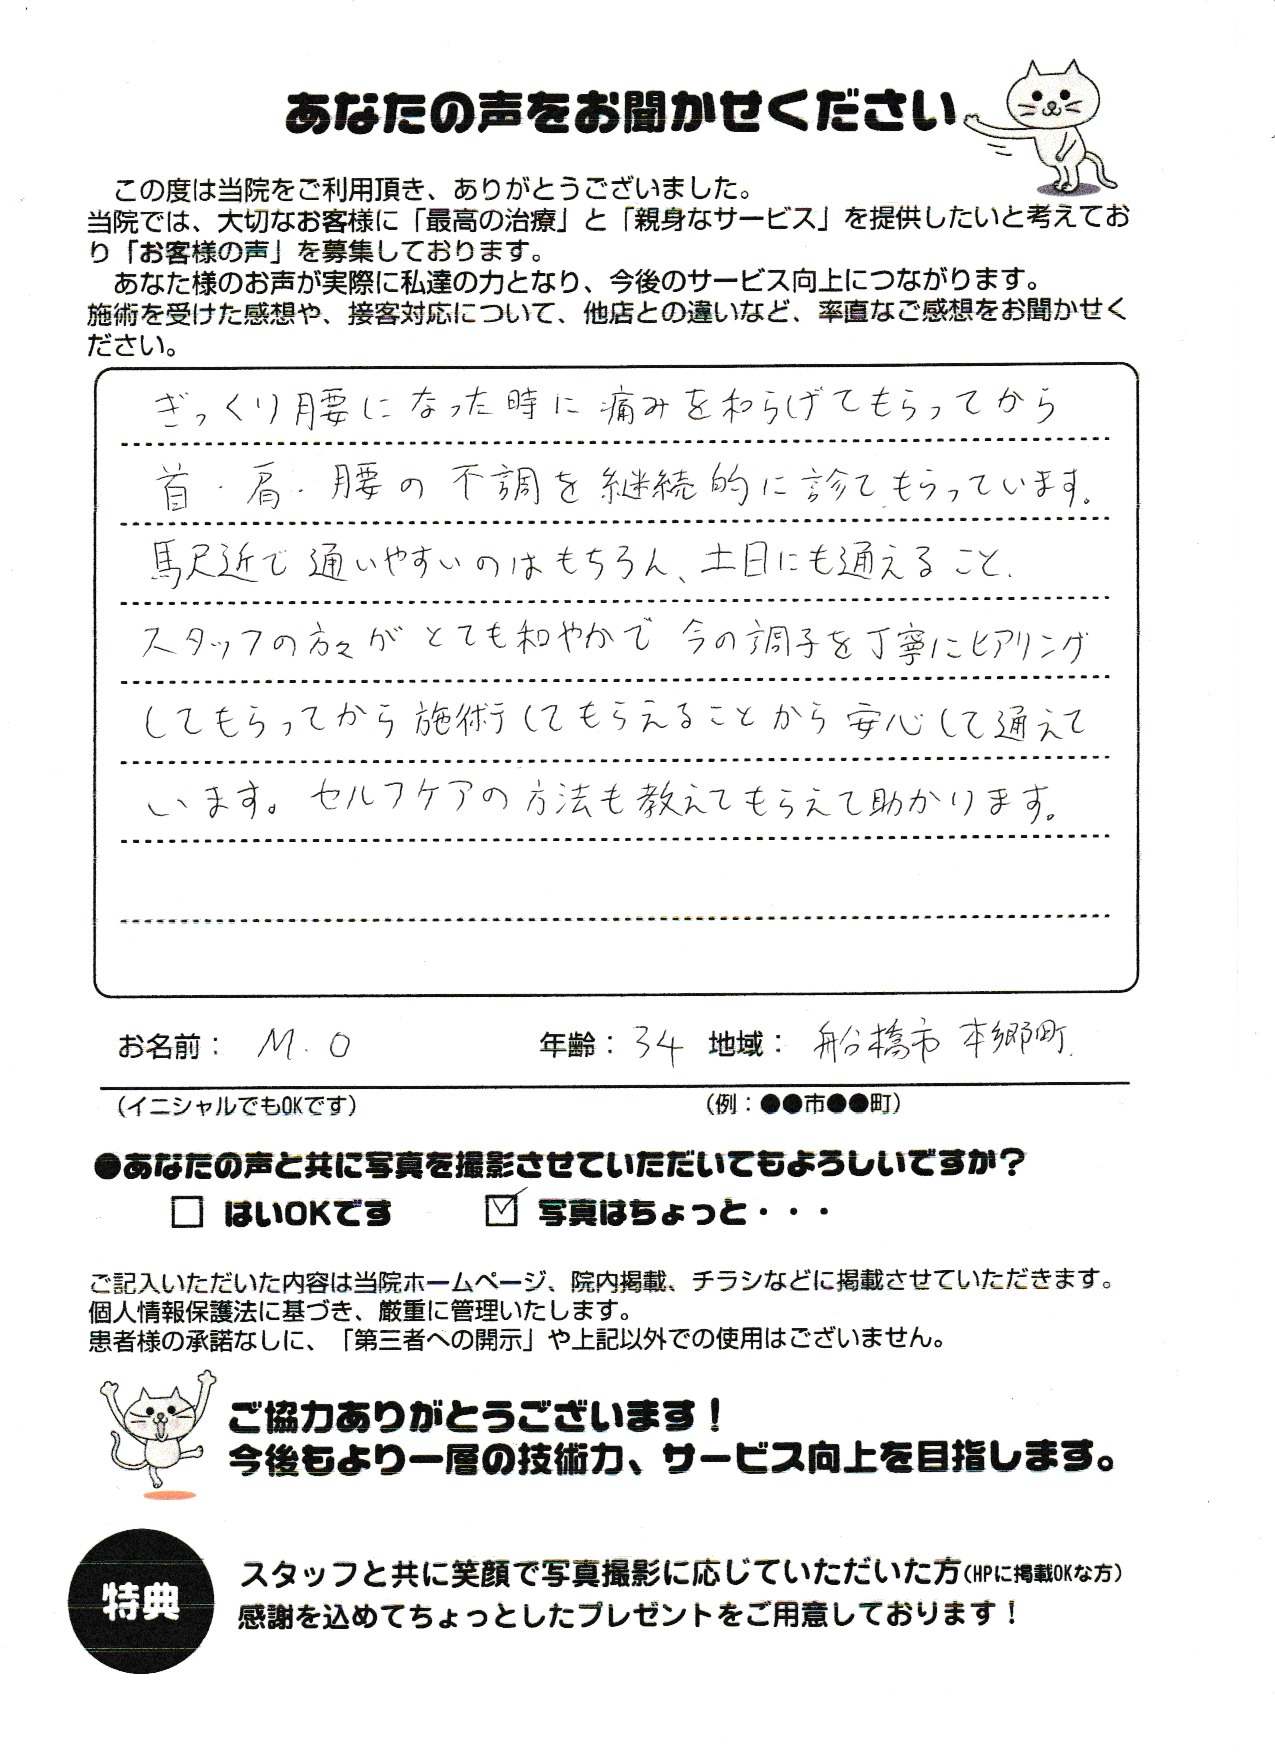 あなたの声をお聞かせください
この度は当院をご利用頂き、ありがとうございました。
当院では、大切なお客様に「最高の治療」と「親身なサービス」を提供したいと考えてお
り「お客様の声」を募集しております。
あなた様のお声が実際に私達の力となり、今後のサービス向上につながります。
施術を受けた感想や、接客対応について、他店との違いなど、率直なご感想をお聞かせく
ださい。
ぎっくり腰になった時に痛みをわらげてもらってから
首・肩・腰の不調を継続的に診てもらっています。
駅近で通いやすいのはもちろん、土日にも通えること、
スタッフの方々がとても和やかで今の調子を丁寧にヒアリング
してもらってから施術してもらえることから安心して通えて
います。セルフケアの方法も教えてもらえて助かります。
お名前： M.O 年齢：34 地域： 船橋市 本郷町
（イニシャルでもOKです） （例：●●市●●町）
●あなたの声と共に写真を撮影させていただいてもよろしいですか？
□ はいOKです ☑ 写真はちょっと・・・
ご記入いただいた内容は当院ホームページ、院内掲載、チラシなどに掲載させていただきます。
個人情報保護法に基づき、厳重に管理いたします。
患者様の承諾なしに、「第三者への開示」や上記以外での使用はございません。
ご協力ありがとうございます！
今後もより一層の技術力、サービス向上を目指します。
特典
スタッフと共に笑顔で写真撮影に応じていただいた方（HPに掲載OKな方）
感謝を込めてちょっとしたプレゼントをご用意しております！